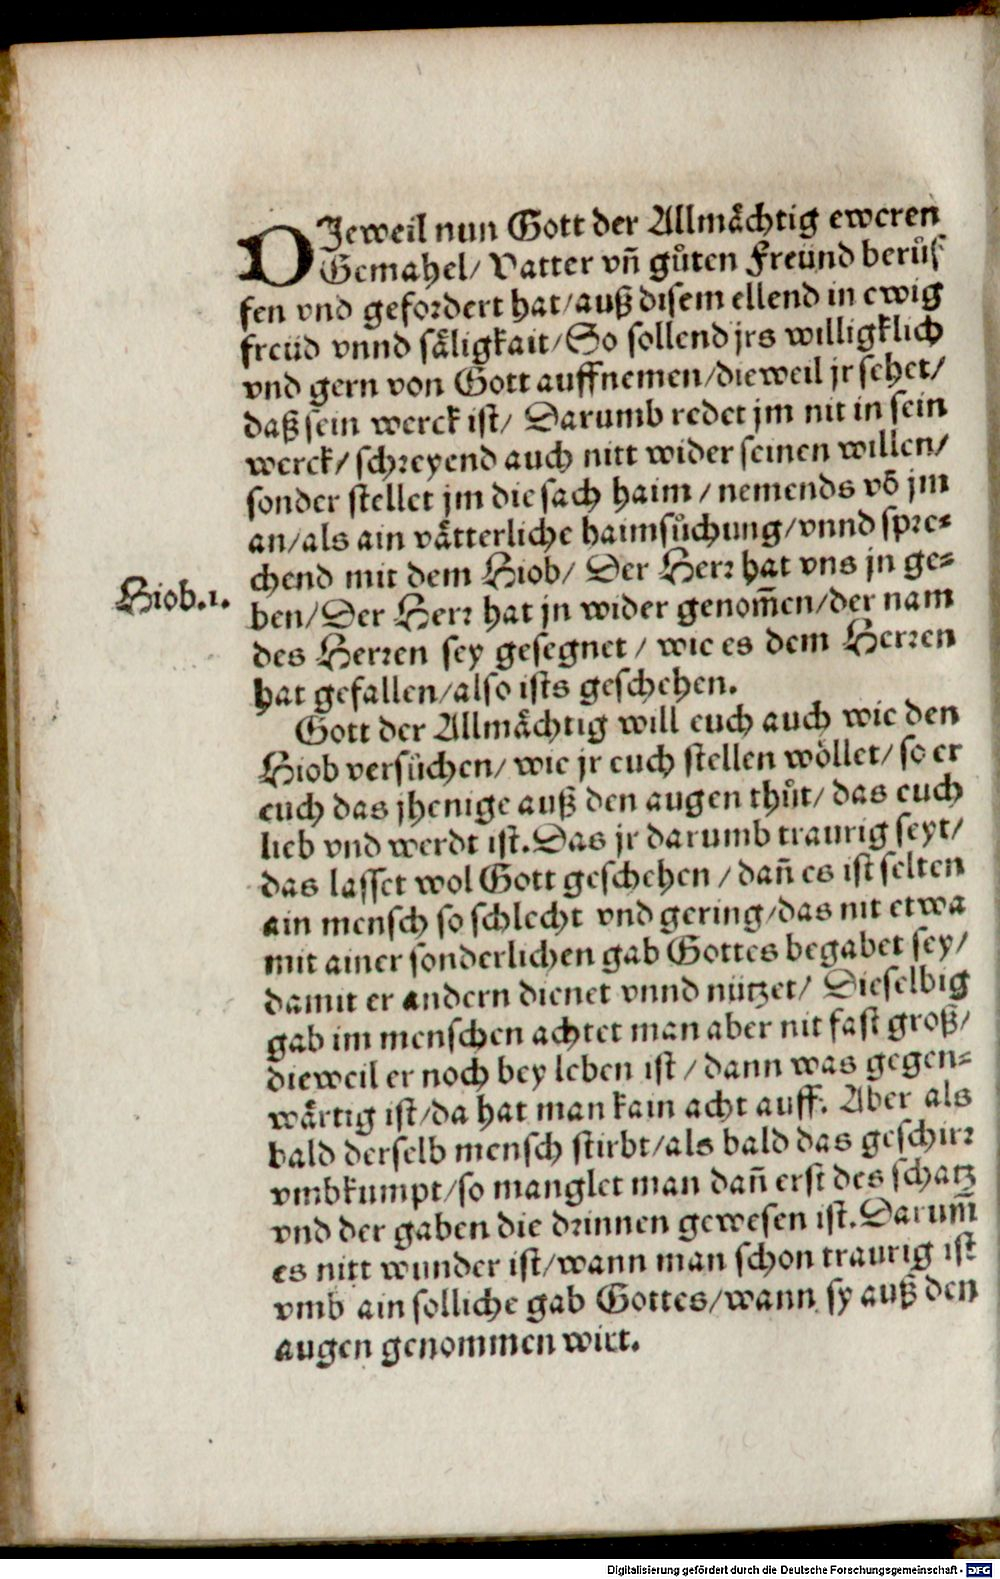 DJeweil nun Gott der Allmaͤchtig eweren
Gemahel/ Vatter vñ guͦten Freünd beruͤf
fen vnd gefordert hat/auß disem ellend in ewig
freüd vnnd saͤligkait/So sollend jrs willigklich
vnd gern von Gott auffnemen/dieweil jr sehet/
daß sein werck ist/ Darumb redet jm nit in sein
werck/ schreyend auch nitt wider seinen willen/
sonder stellet jm die sach haim / nemends võ jm
an/als ain vaͤtterliche haimsuͦchung/vnnd spre⸗
chend mit dem Hiob/ Der Herr hat vns jn ge⸗
Hiob.1.
ben/Der Herr hat jn wider genom̃en/der nam
des Herren sey gesegnet / wie es dem Herren
hat gefallen/also ists geschehen.
Gott der Allmaͤchtig will euch auch wie den
Hiob versuͦchen/ wie jr euch stellen woͤllet/ so er
euch das jhenige auß den augen thuͦt/ das euch
lieb vnd werdt ist. Das jr darumb traurig seyt/
das lasset wol Gott geschehen / dañ es ist selten
ain mensch so schlecht vnd gering/das nit etwa
mit ainer sonderlichen gab Gottes begabet sey/
damit er andern dienet vnnd nützet/ Dieselbig
gab im menschen achtet man aber nit fast groß/
dieweil er noch bey leben ist / dann was gegen⸗
waͤrtig ist/da hat man kain acht auff. Aber als
bald derselb mensch stirbt/als bald das geschirr
vmbkumpt/so manglet man dañ erst des schatz
vnd der gaben die drinnen gewesen ist. Darum̃
es nitt wunder ist/wann man schon traurig ist
vmb ain solliche gab Gottes/wann sy auß den
augen genommen wirt.
Digitalisierung gefördert durch die Deutsche Forschungsgemeinschaft - DFG